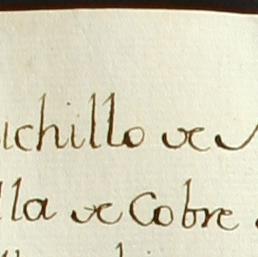 uchillo de
lla de Cobre